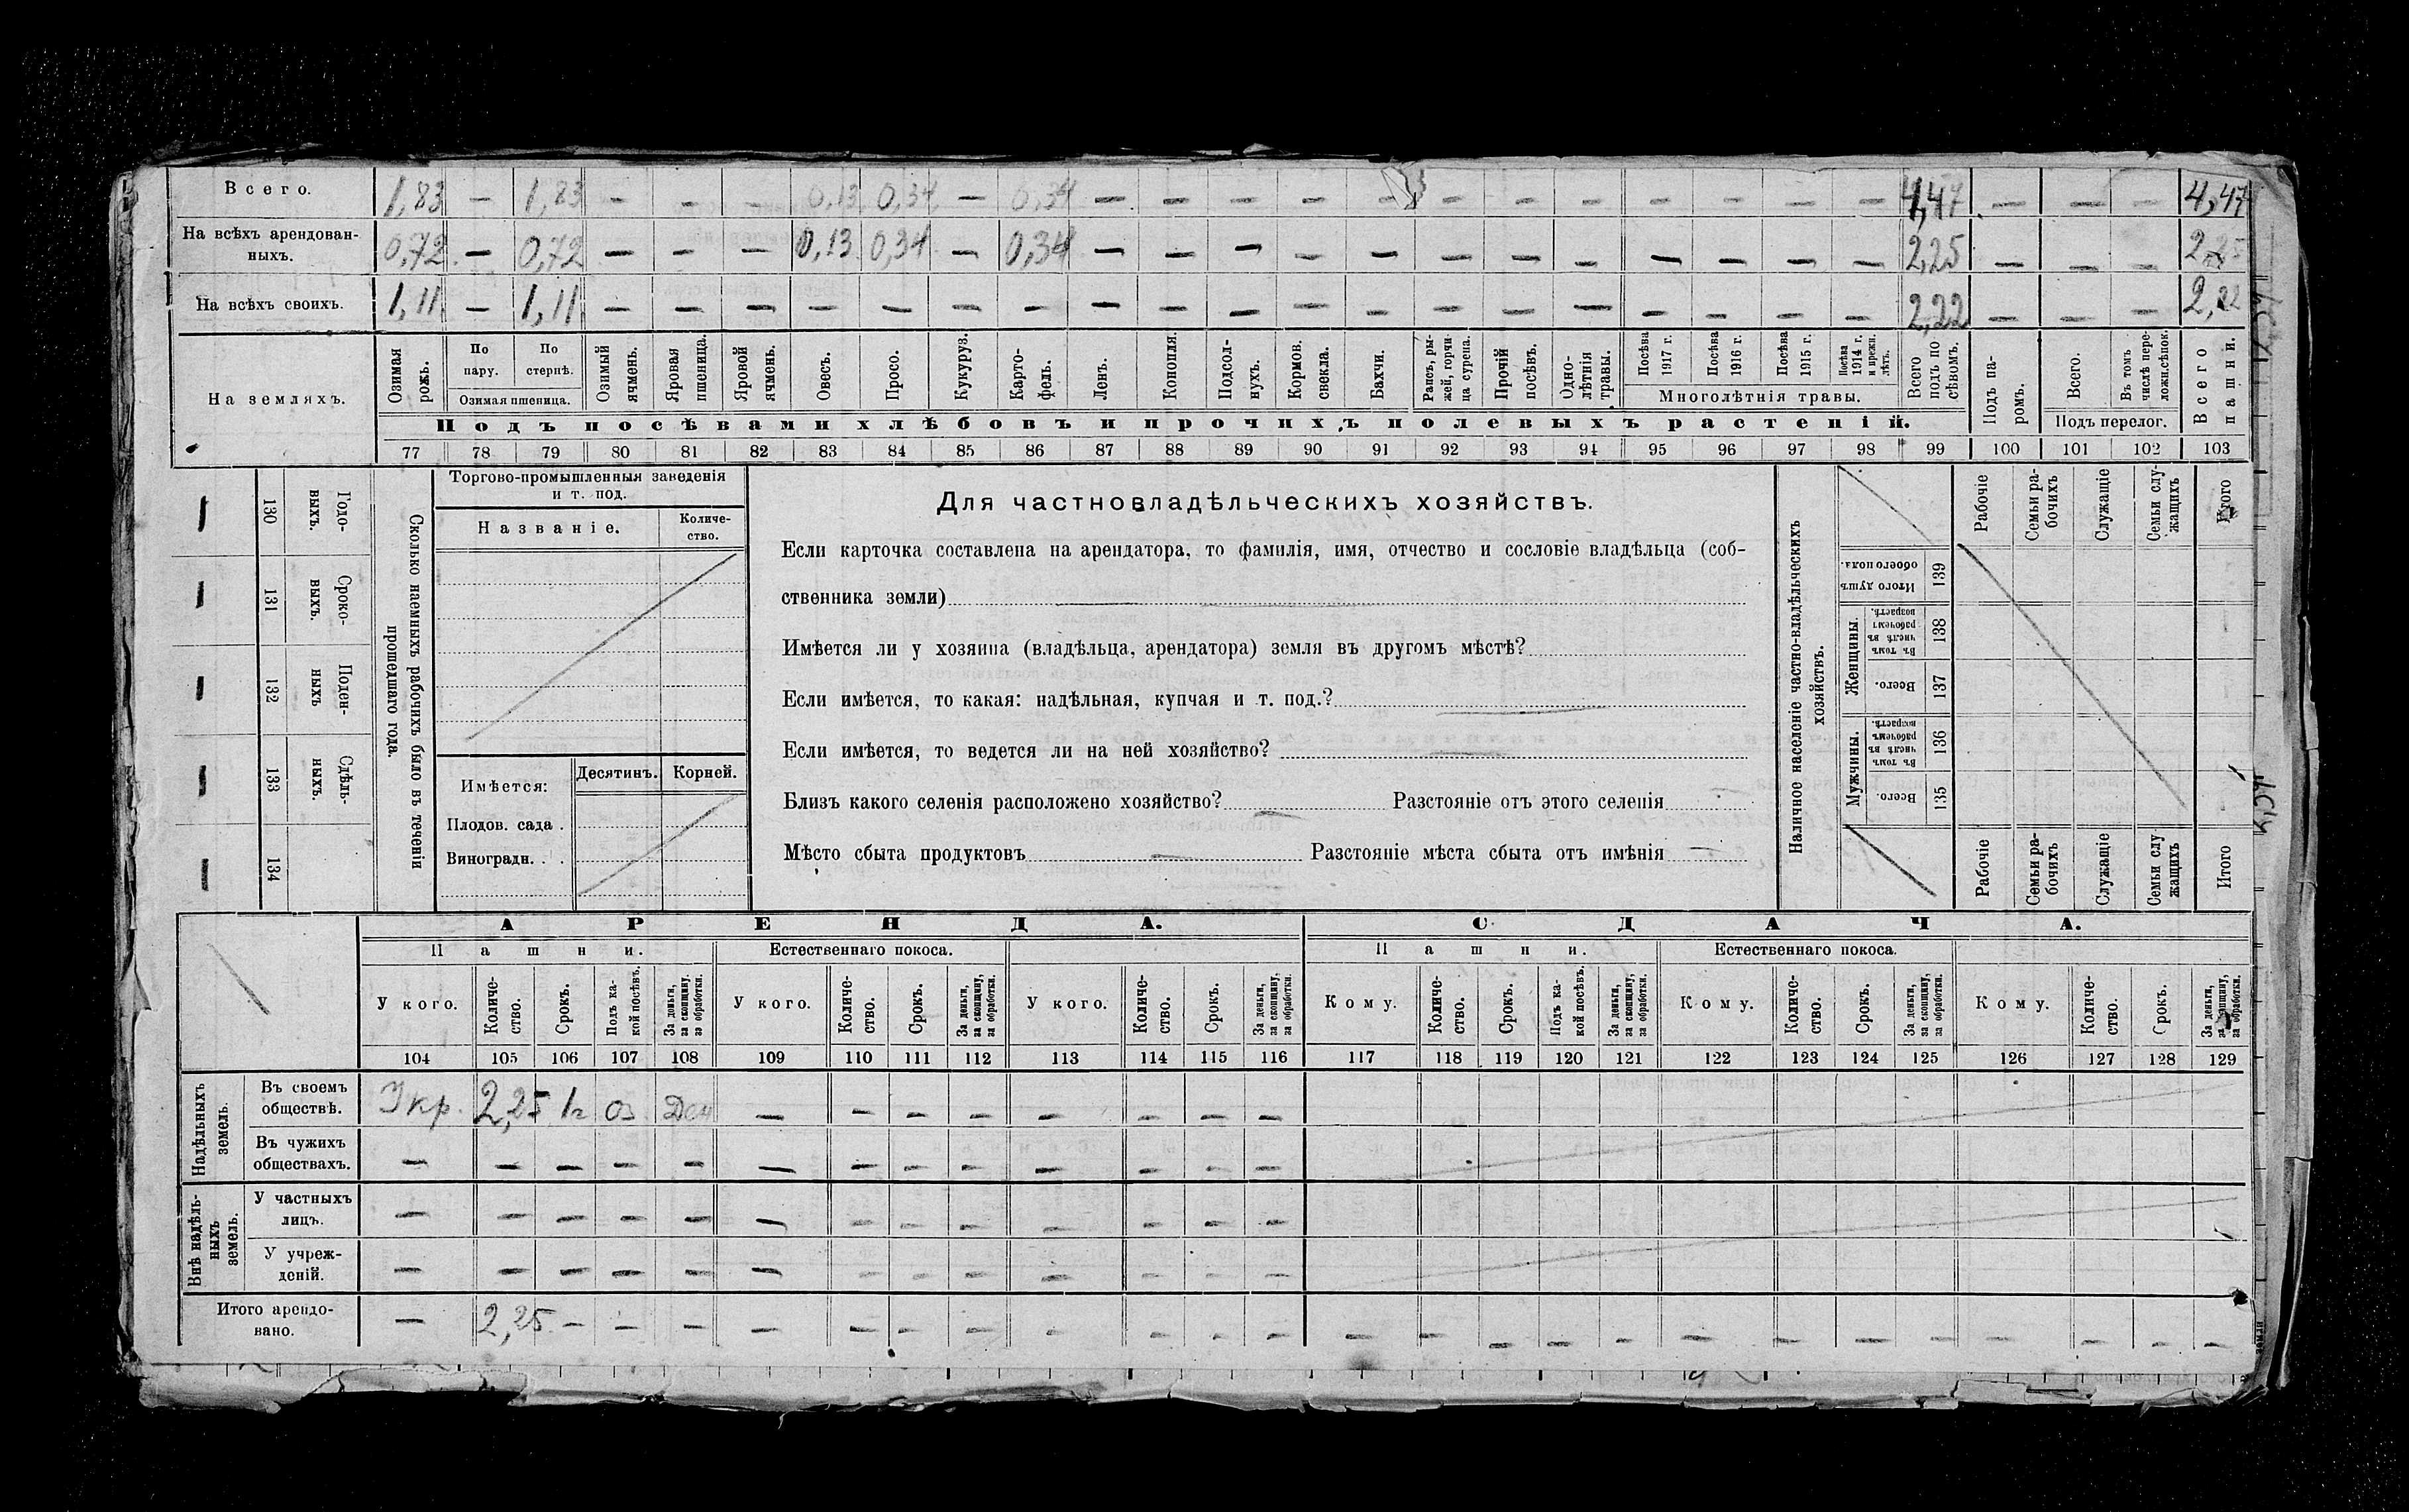 Всего. 1,83 — 1,83 — — — 0,13 0,34 — 0,34 — — — — — — — — — — — — 4,47 — — — 4,47
На всѣхъ арендован-
ныхъ. 0,72 — 0,72 — — — 0,13 0,34 — 0,34 — — — — — — — — — — — — 2,25 — — — 2,25
На всѣхъ своихъ. 1,11 — 1,11 — — — — — — — — — — — — — — — — — — — 2,22 — — — 2,22
На земляхъ.
Озимая рожь.
По пару.
По стернѣ.
Озимая пшеница.
Озимый ячмень.
Яровая пшоница.
Яровой ячмень.
Овесъ.
Просо.
Кукуруз.
Карто-
фель.
Ленъ.
Конопля.
Подсол-
нухъ.
Кормов.
свекла.
Бахчи.
Рапсъ, ры-
жей, горчи
ца сурепа.
Прочій
посѣвъ.
Одно-
лѣтнія
травы.
Посѣва
1917 г.
Посѣва
1916 г.
Посѣва
1915 г.
Посѣва
1914 г.
и прежн.
лѣтъ.
Многолѣтнія травы.
Всего
подъ по
сѣвомъ.
Подъ па-
ромъ.
Всего.
Въ томъ
числѣ пере-
ложн.сѣпок.
Подъ перелог.
Всего
пашни.
Подъ посѣвами хлѣбовъ и прочихъ полевыхъ растеній.
77 78 79 80 81 82 83 84 85 86 87 88 89 90 91 92 93 94 95 96 97 98 99 100 101 102 103
Годо-
выхъ.
130
Сроко-
выхъ.
131
Поден-
ныхъ
132
Сдѣль-
ныхъ.
133
134
Сколько наемныхъ рабочихъ было въ теченіи
прошедшаго года.
Торгово-промышленныя заведенія
и т. под.
Названіе.
Количе-
ство.
Имѣется:
Десятинъ. Корней.
Плодов. сада .
Виноградн. . .
Для частновладѣльческихъ хозяйствъ.
Если карточка составлена на арендатора, то фамилія, имя, отчество и сословіе владѣльца (соб-
ственника земли)
Имѣется ли у хозяина (владѣльца, арендатора) земля въ другомъ мѣстѣ?
Если имѣется, то какая: надѣльная, купчая и т. под.?
Если имѣется, то ведется ли на ней хозяйство?
Близъ какого селенія расположено хозяйство? — Разстояніе отъ этого селенія —
Мѣсто сбыта продуктовъ — Разстояніе мѣста сбыта отъ имѣнія —
Наличное населеніе частно-владѣльческихъ
хозяйствъ.
Рабочіе
Семьи ра-
бочихъ
Служащіе
Семьи слу-
жащихъ
Итого
Итого душъ
обоего пола.
139
Женщины.
Въ томъ
числѣ въ
рабочемъ
возрастѣ.
138
Всего.
137
Мужчины.
Въ томъ
числѣ въ
рабочемъ
возрастѣ.
136
Всего.
135
Рабочіе
Семьи ра-
бочихъ
Служащіе
Семьи слу
жащихъ
Итого
АРЕНДА. СДАЧА.
Пашни. Естественнаго покоса. Пашни. Естественнаго покоса.
У кого.
Количе-
ство.
Срокъ.
Подъ ка-
кой посѣвъ.
За деньги,
за скопщину,
за обработки.
У кого.
Количе-
ство.
Срокъ.
За деньги,
за скопщину,
за обработки.
У кого.
Количе-
ство.
Срокъ.
За деньги,
за скопщину,
за обработки.
Кому.
Количе-
ство.
Срокъ.
Подъ ка-
кой посѣвъ.
За деньги,
за скопщину,
за обработки.
Кому.
Количе-
ство.
Срокъ.
За деньги,
за скопщину,
за обработки.
Кому.
Количе-
ство.
Срокъ.
За деньги,
за скопщину,
за обработки.
104 105 106 107 108 109 110 111 112 113 114 115 116 117 118 119 120 121 122 123 124 125 126 127 128 129
Надѣльныхъ
земель.
Въ своемъ
обществѣ. 2,25 1г оз Ден — — — — — — — —
Въ чужихъ
обществахъ. — — — — — — — — — — — — —
Внѣ надѣль-
ныхъ
земель.
У частныхъ
лицъ. — — — — — — — — — — — — —
У учреж-
деній. — — — — — — — — — — — — —
Итого арендо-
вано. — 2,25 — — — — — — — — — — — — — — — — — — — — — — — —